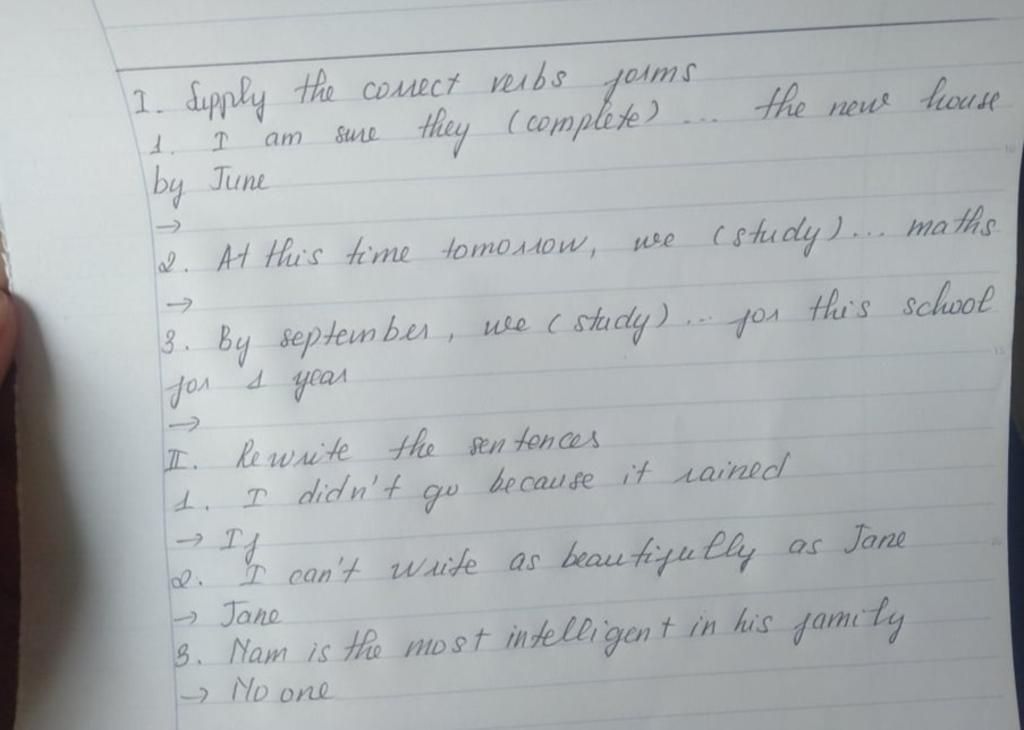 I. Supply the correct verbs forms
1. I am sure they (complete) ... the new house
by June
→
2. At this time tomorrow, we (study) ... maths
→
3. By september, we (study) ... for this school
for 1 year
→
II. Rewrite the sentences
1. I didn't go because it rained
→ If
2. I can't write as beautifully as Jane
→ Jane
3. Nam is the most intelligent in his family
→ No one